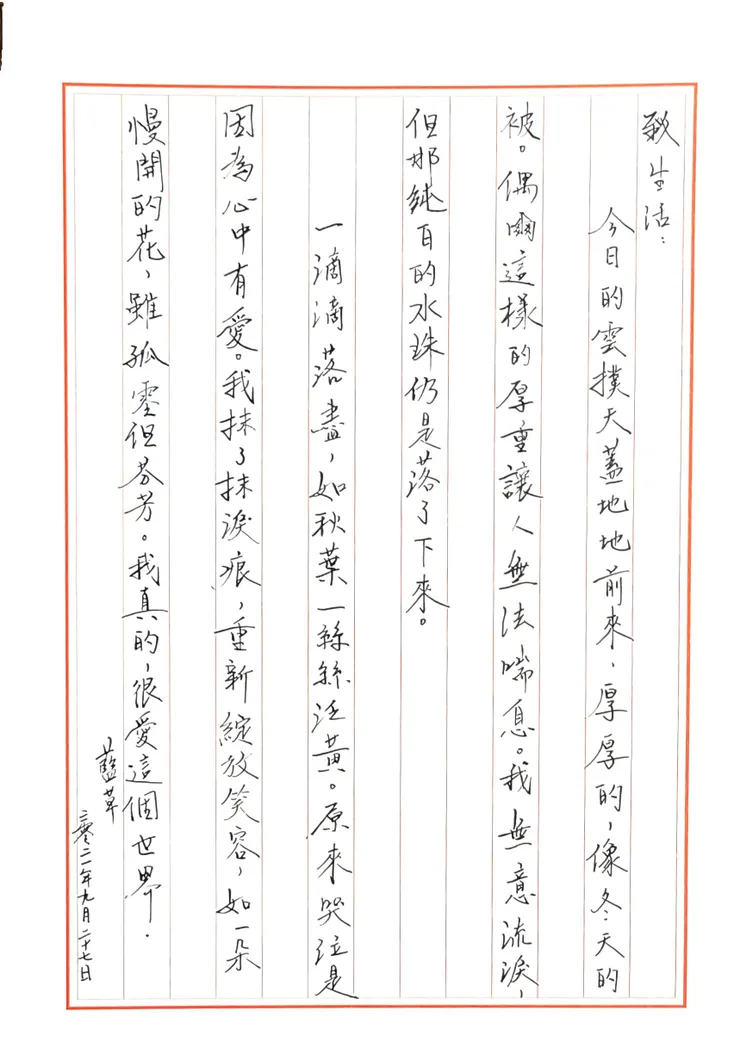 致生活：
今日的雲撲天蓋地地前來，厚厚的，像冬天的
被。偶爾這樣的厚重讓人無法喘息。我無意流淚，
但那純白的水珠仍是落了下來。
一滴滴落盡，如秋葉一絲絲泛黃。原來哭泣是
因為心中有愛。我抹了抹淚痕，重新綻放笑容，如一朵
慢開的花，雖孤零但芬芳。我真的，很愛這個世界．
藍草
二零二一年九月二十七日